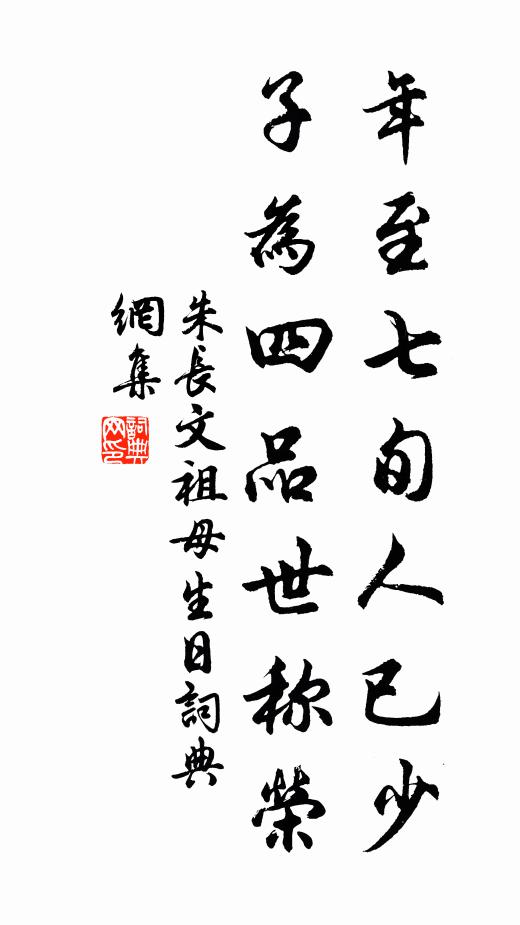 年至七旬人已少
子為四品世称榮
朱長文祖母生日詞典
網集
詞典
网印